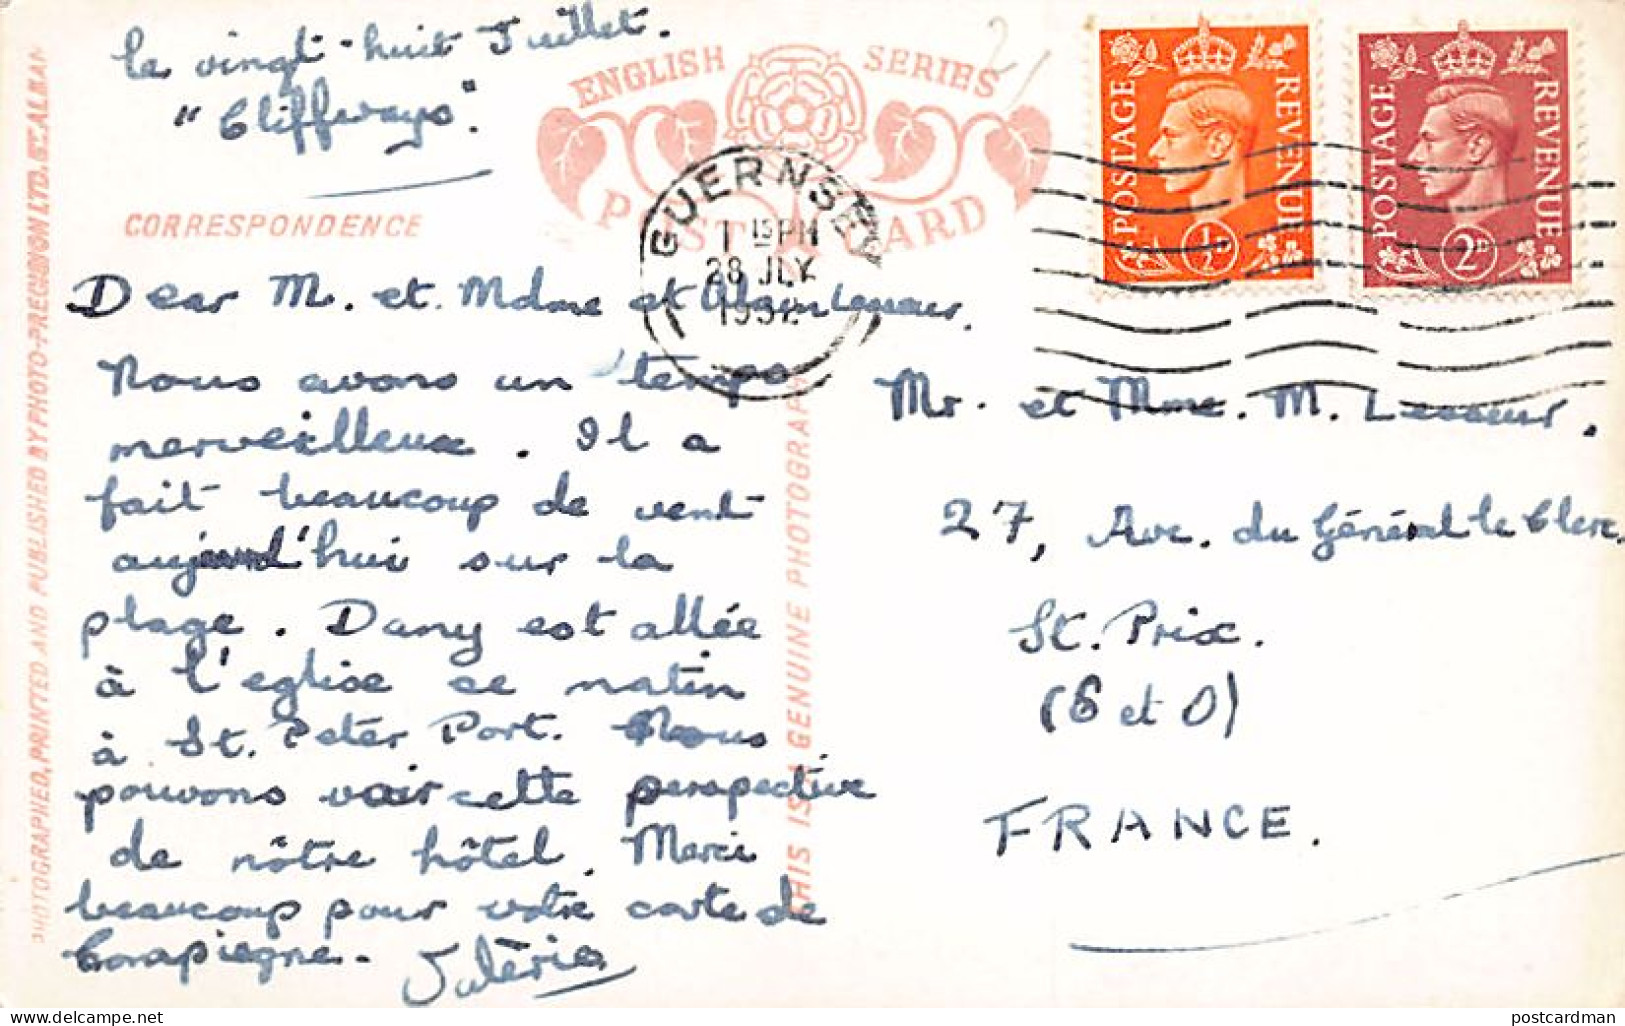 le vingt-huit Juillet.
"Cliffways".
ENGLISH SERIES
POST CARD
CORRESPONDENCE
GUERNSEY
1 15 PM
28 JLY
POSTAGE REVENUE
½D
POSTAGE REVENUE
2D
Dear M. et. Mdme et
Nous avons un temps
merveilleux. Il a
fait beaucoup de vent
aujourd'hui sur la
plage. Dany est allée
à l'eglise ce matin
à St. Peter Port. Nous
pouvons voir cette perspective
de nôtre hôtel. Merci
beaucoup pour votre carte de
Compiegne. Valèrie
Mr. et Mme. M. Lesueur.
27, Ave. du Général le Clerc.
St. Prix.
(S et O)
FRANCE.
PHOTOGRAPHED, PRINTED AND PUBLISHED BY PHOTO-PRECISION LTD. ST. ALBAN
THIS IS A GENUINE PHOTOGRAPH
postcardman